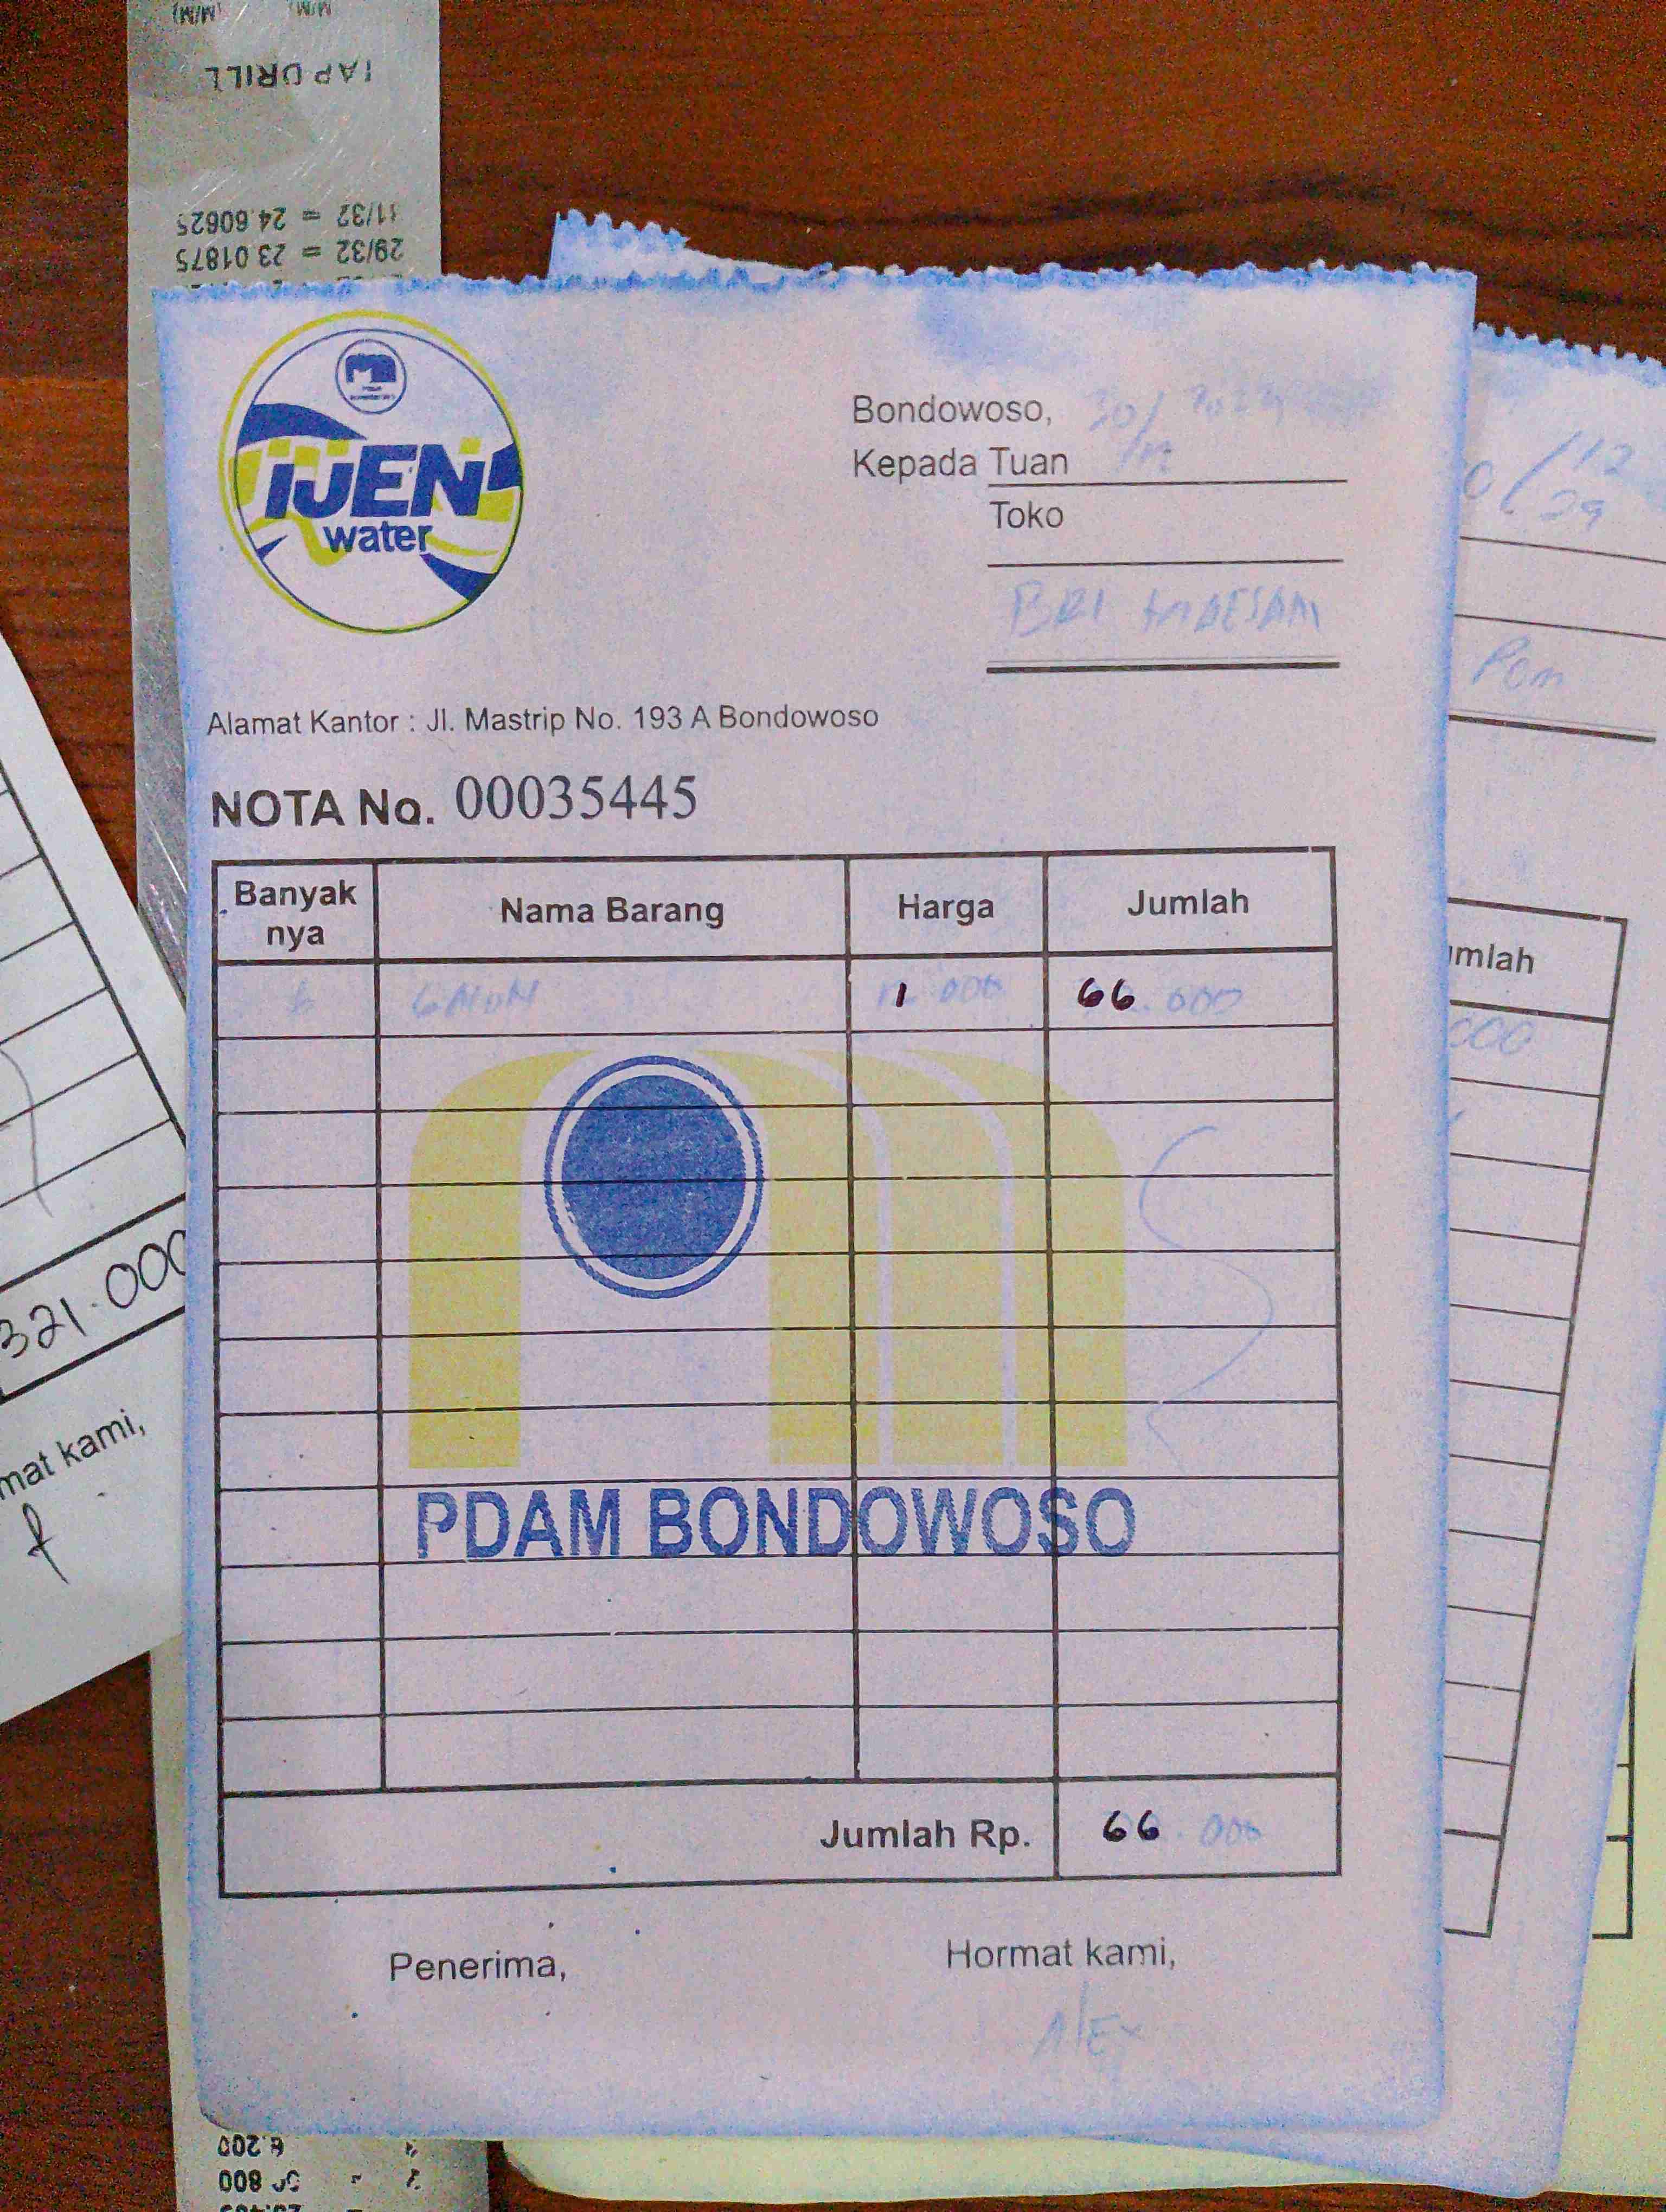 TAP DRILL
31/32 = 24.60625
29/32 = 23.01875
IJEN
water
Bondowoso, 30/12
Kepada Tuan
Toko
BRI
Alamat Kantor : Jl. Mastrip No. 193 A Bondowoso
NOTA No. 00035445
Banyak nya Nama Barang Harga Jumlah
GALON 66.000
PDAM BONDOWOSO
Jumlah Rp. 66.000
Penerima, Hormat kami,
Alex
321.000
mat kami,
/12
Pom
umlah
000